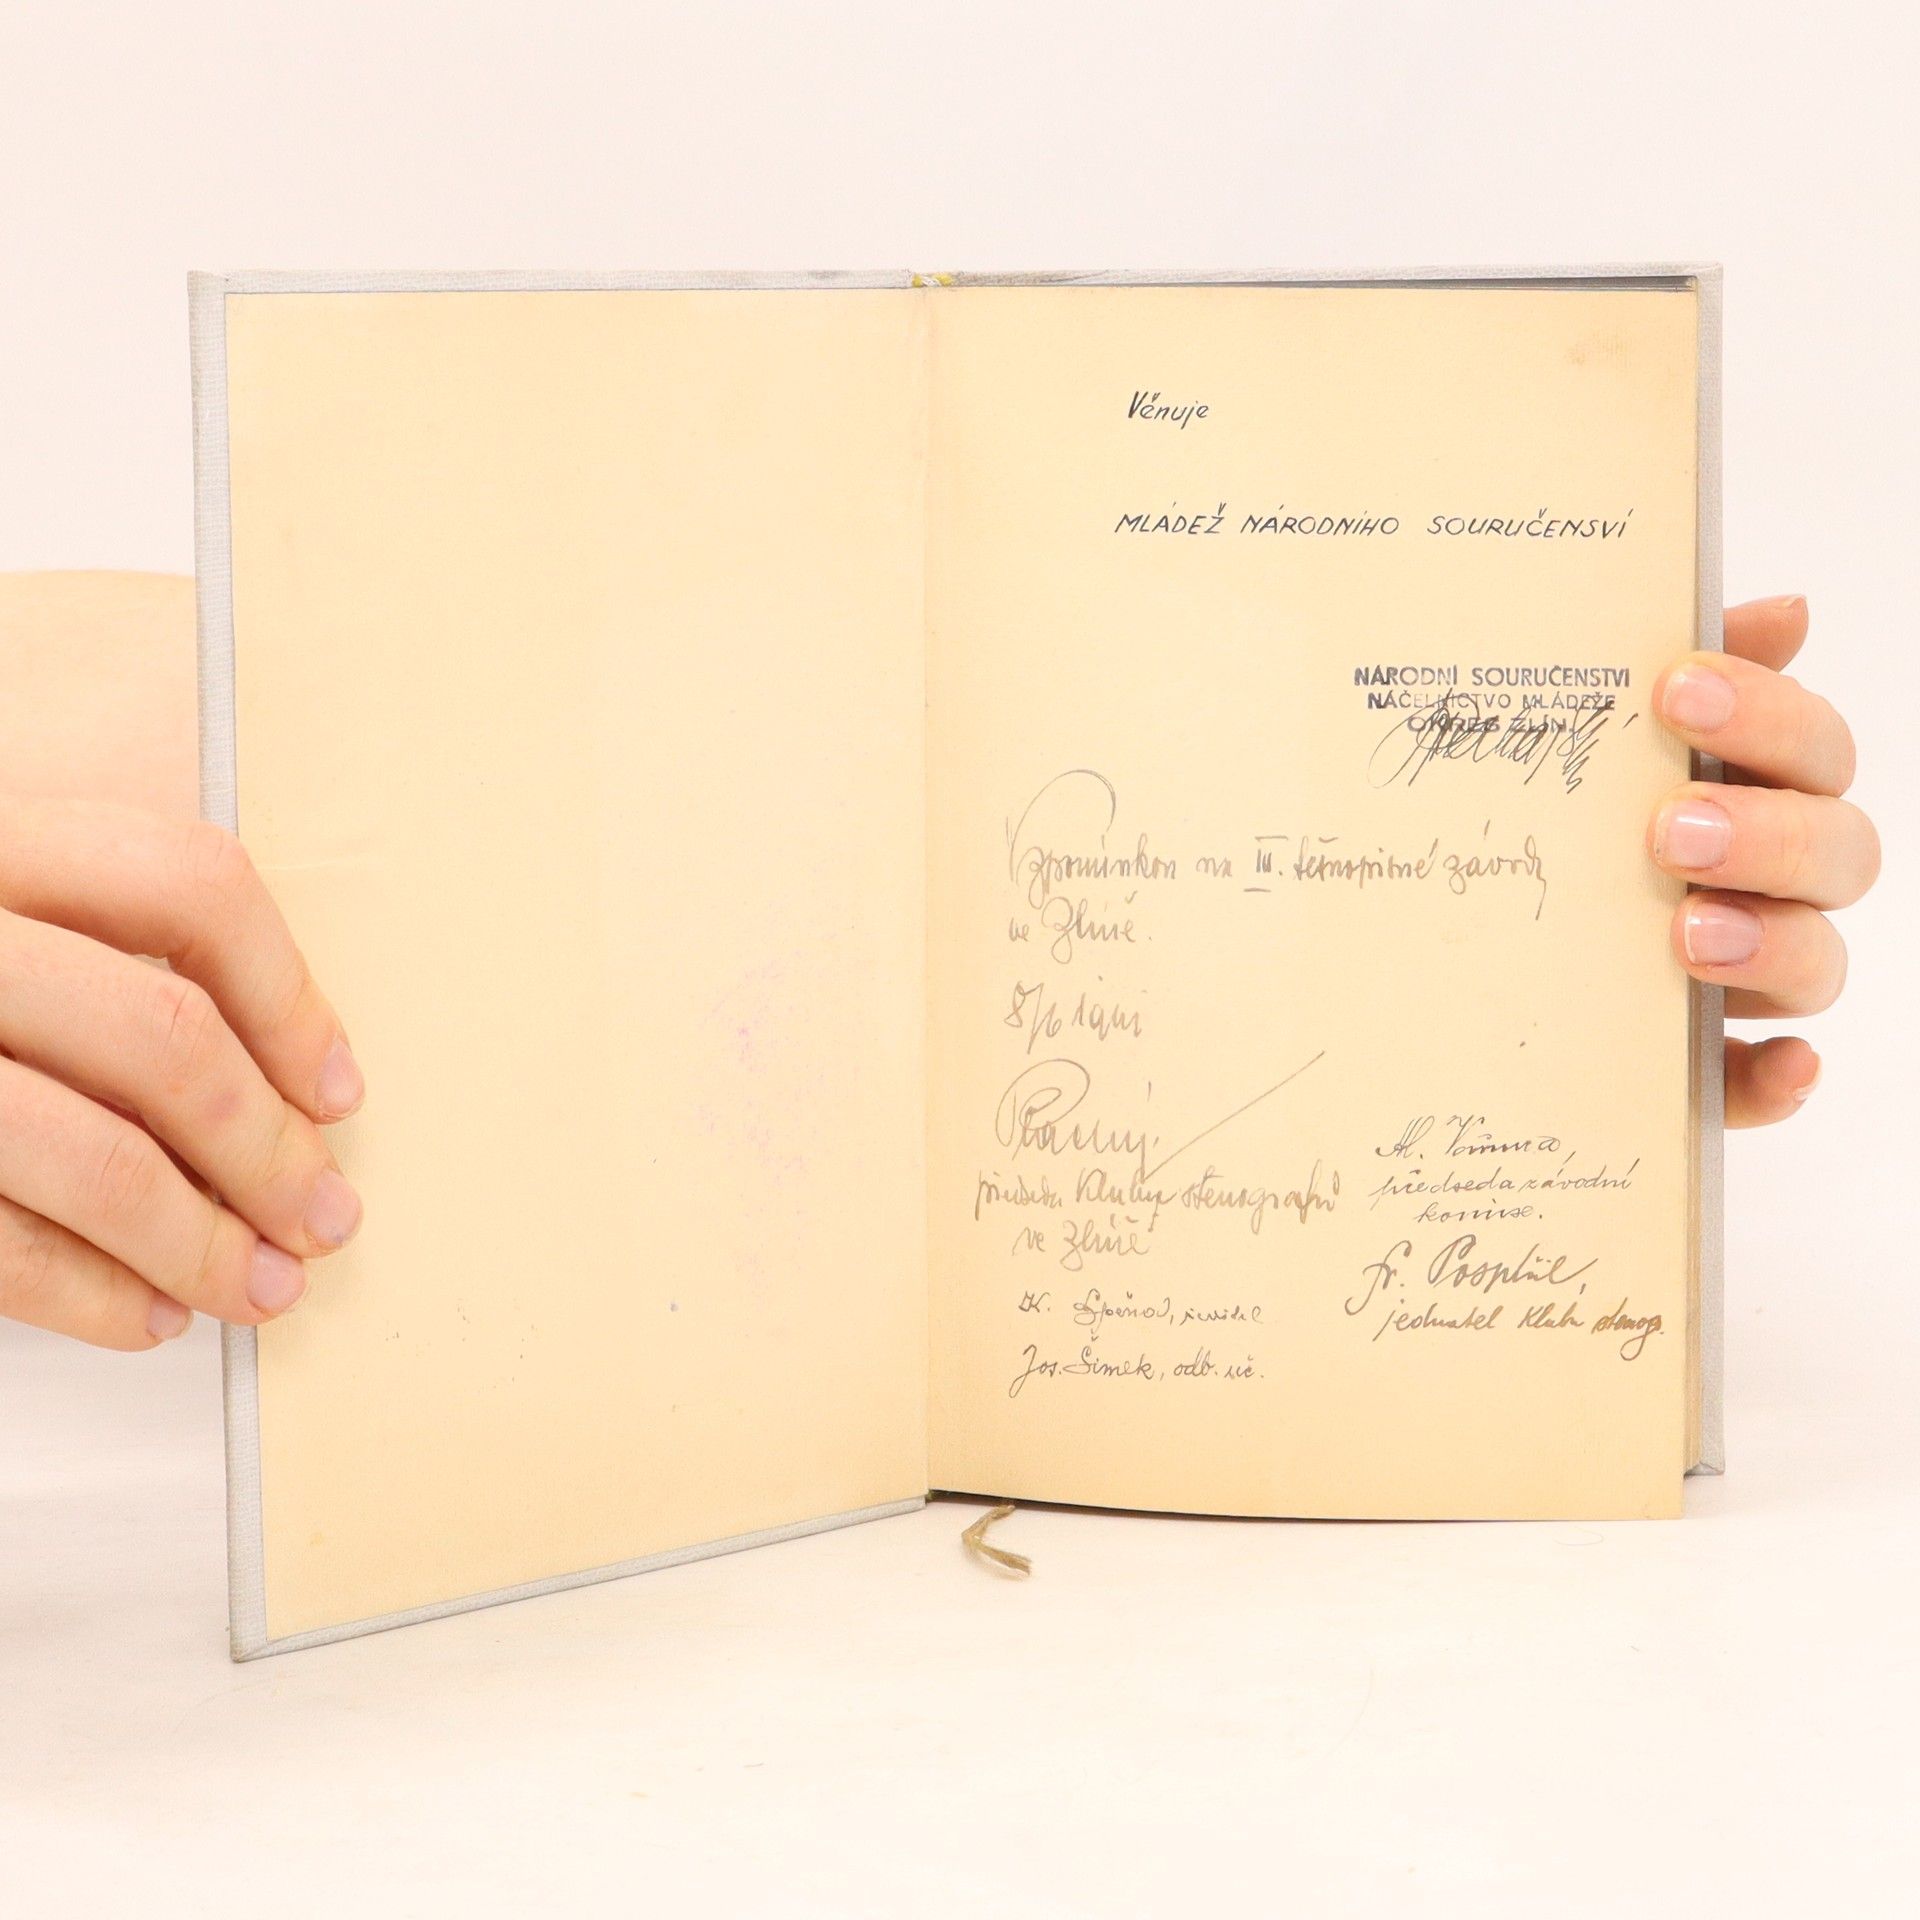 Věnuje
MLÁDEŽ NÁRODNÍHO SOURUČENSVÍ
NÁRODNÍ SOURUČENSTVÍ
NÁČELNICTVO MLÁDEŽE
OKRES ZLÍN.
Vzpomínkou na IV. těsnopisné závody
ve Zlíně.
8/6 1941
předseda Klubu stenografů
ve Zlíně
Al.
předseda závodní
komise.
Fr. Pospíšil,
jednatel Klubu stenogr.
K.
Jos. Šimek, odb. uč.